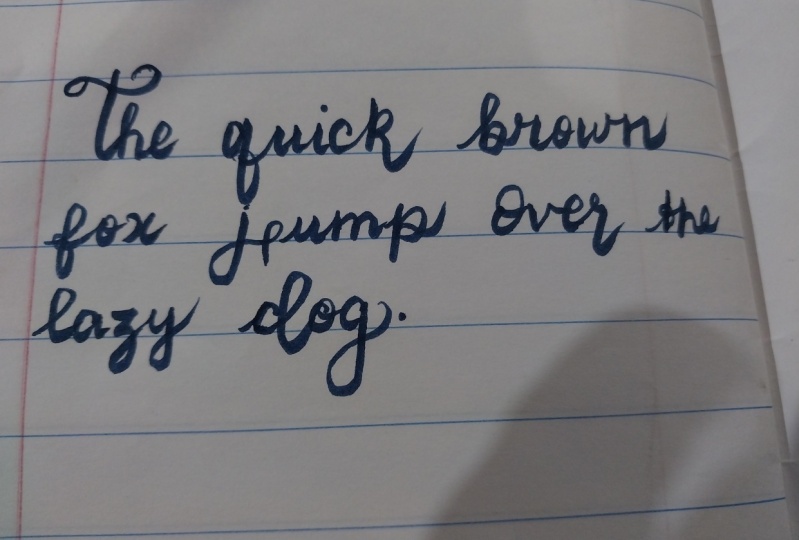 The quick brown
fox jpump over the
lazy dog.